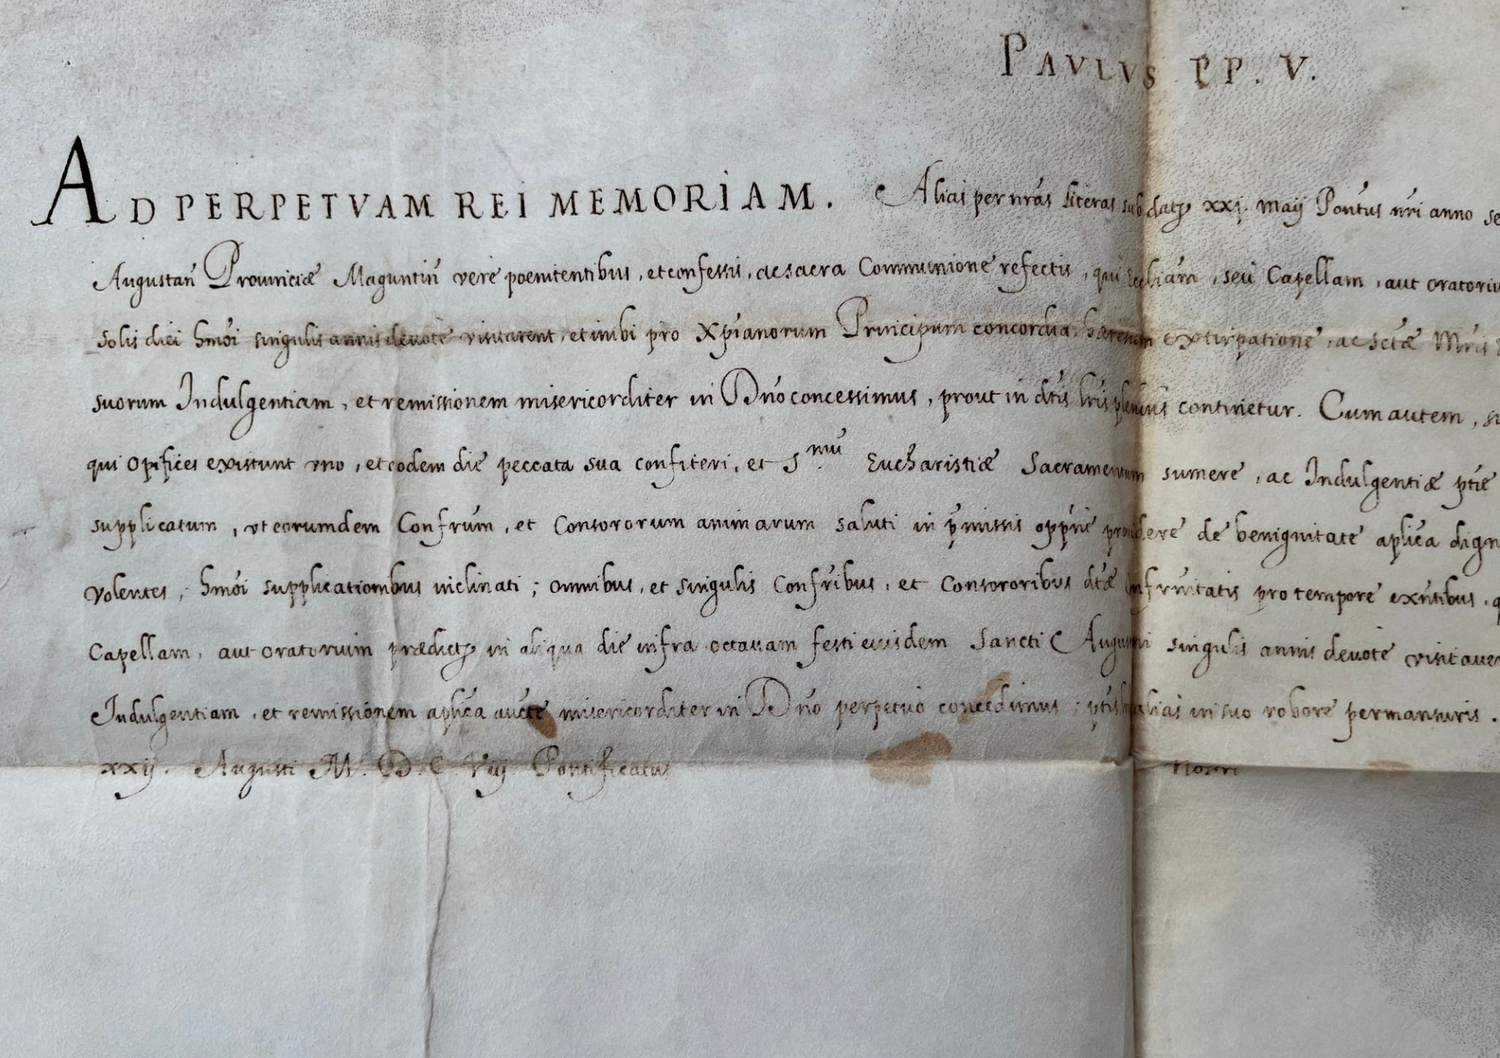 PAVLVS PP. V.
AD PERPETVAM REI MEMORIAM. Alias per nr̃as literas sub dat. xxj. Maij Pontus nr̃i anno se
Augustan̄ Prouinciæ Maguntin̄ vere poenitentibus, et confessis, ac sacra Communione refectis, qui Eccliam, seu Capellam, aut oratoriu
solis diei hmõi singulis annis deuote visitarent, et inibi pro Xpianorum Principum concordia, hæresum extirpatione, ac sctæ Mris
suorum Indulgentiam, et remissionem misericorditer in Dño concessimus, prout in dtis lris plenius continetur. Cum autem, si
qui opifices existunt vno, et eodem die peccata sua confiteri, et S.mũ Eucharistiæ Sacramentum sumere, ac Indulgentiæ ptiẽ
supplicatum, vt eorumdem Confrum, et Consororum animarum saluti in pmissis opprie prouidere de benignitate aplica dign
volentes, hmõi supplicationibus inclinati; omnibus, et singulis Confribus, et Consororibus dtæ Confrnitatis pro tempore exñtibus, q
Capellam, aut oratorium prædict. in aliqua die infra octauam festi eiusdem Sancti Augustini singulis annis deuote visitauer
Indulgentiam, et remissionem aplica aucte misericorditer in Dño perpetuo concedimus; ptis alias in suo robore permansuris.
xxij. Augusti M.D.C.Vij. Pontificatus nostri